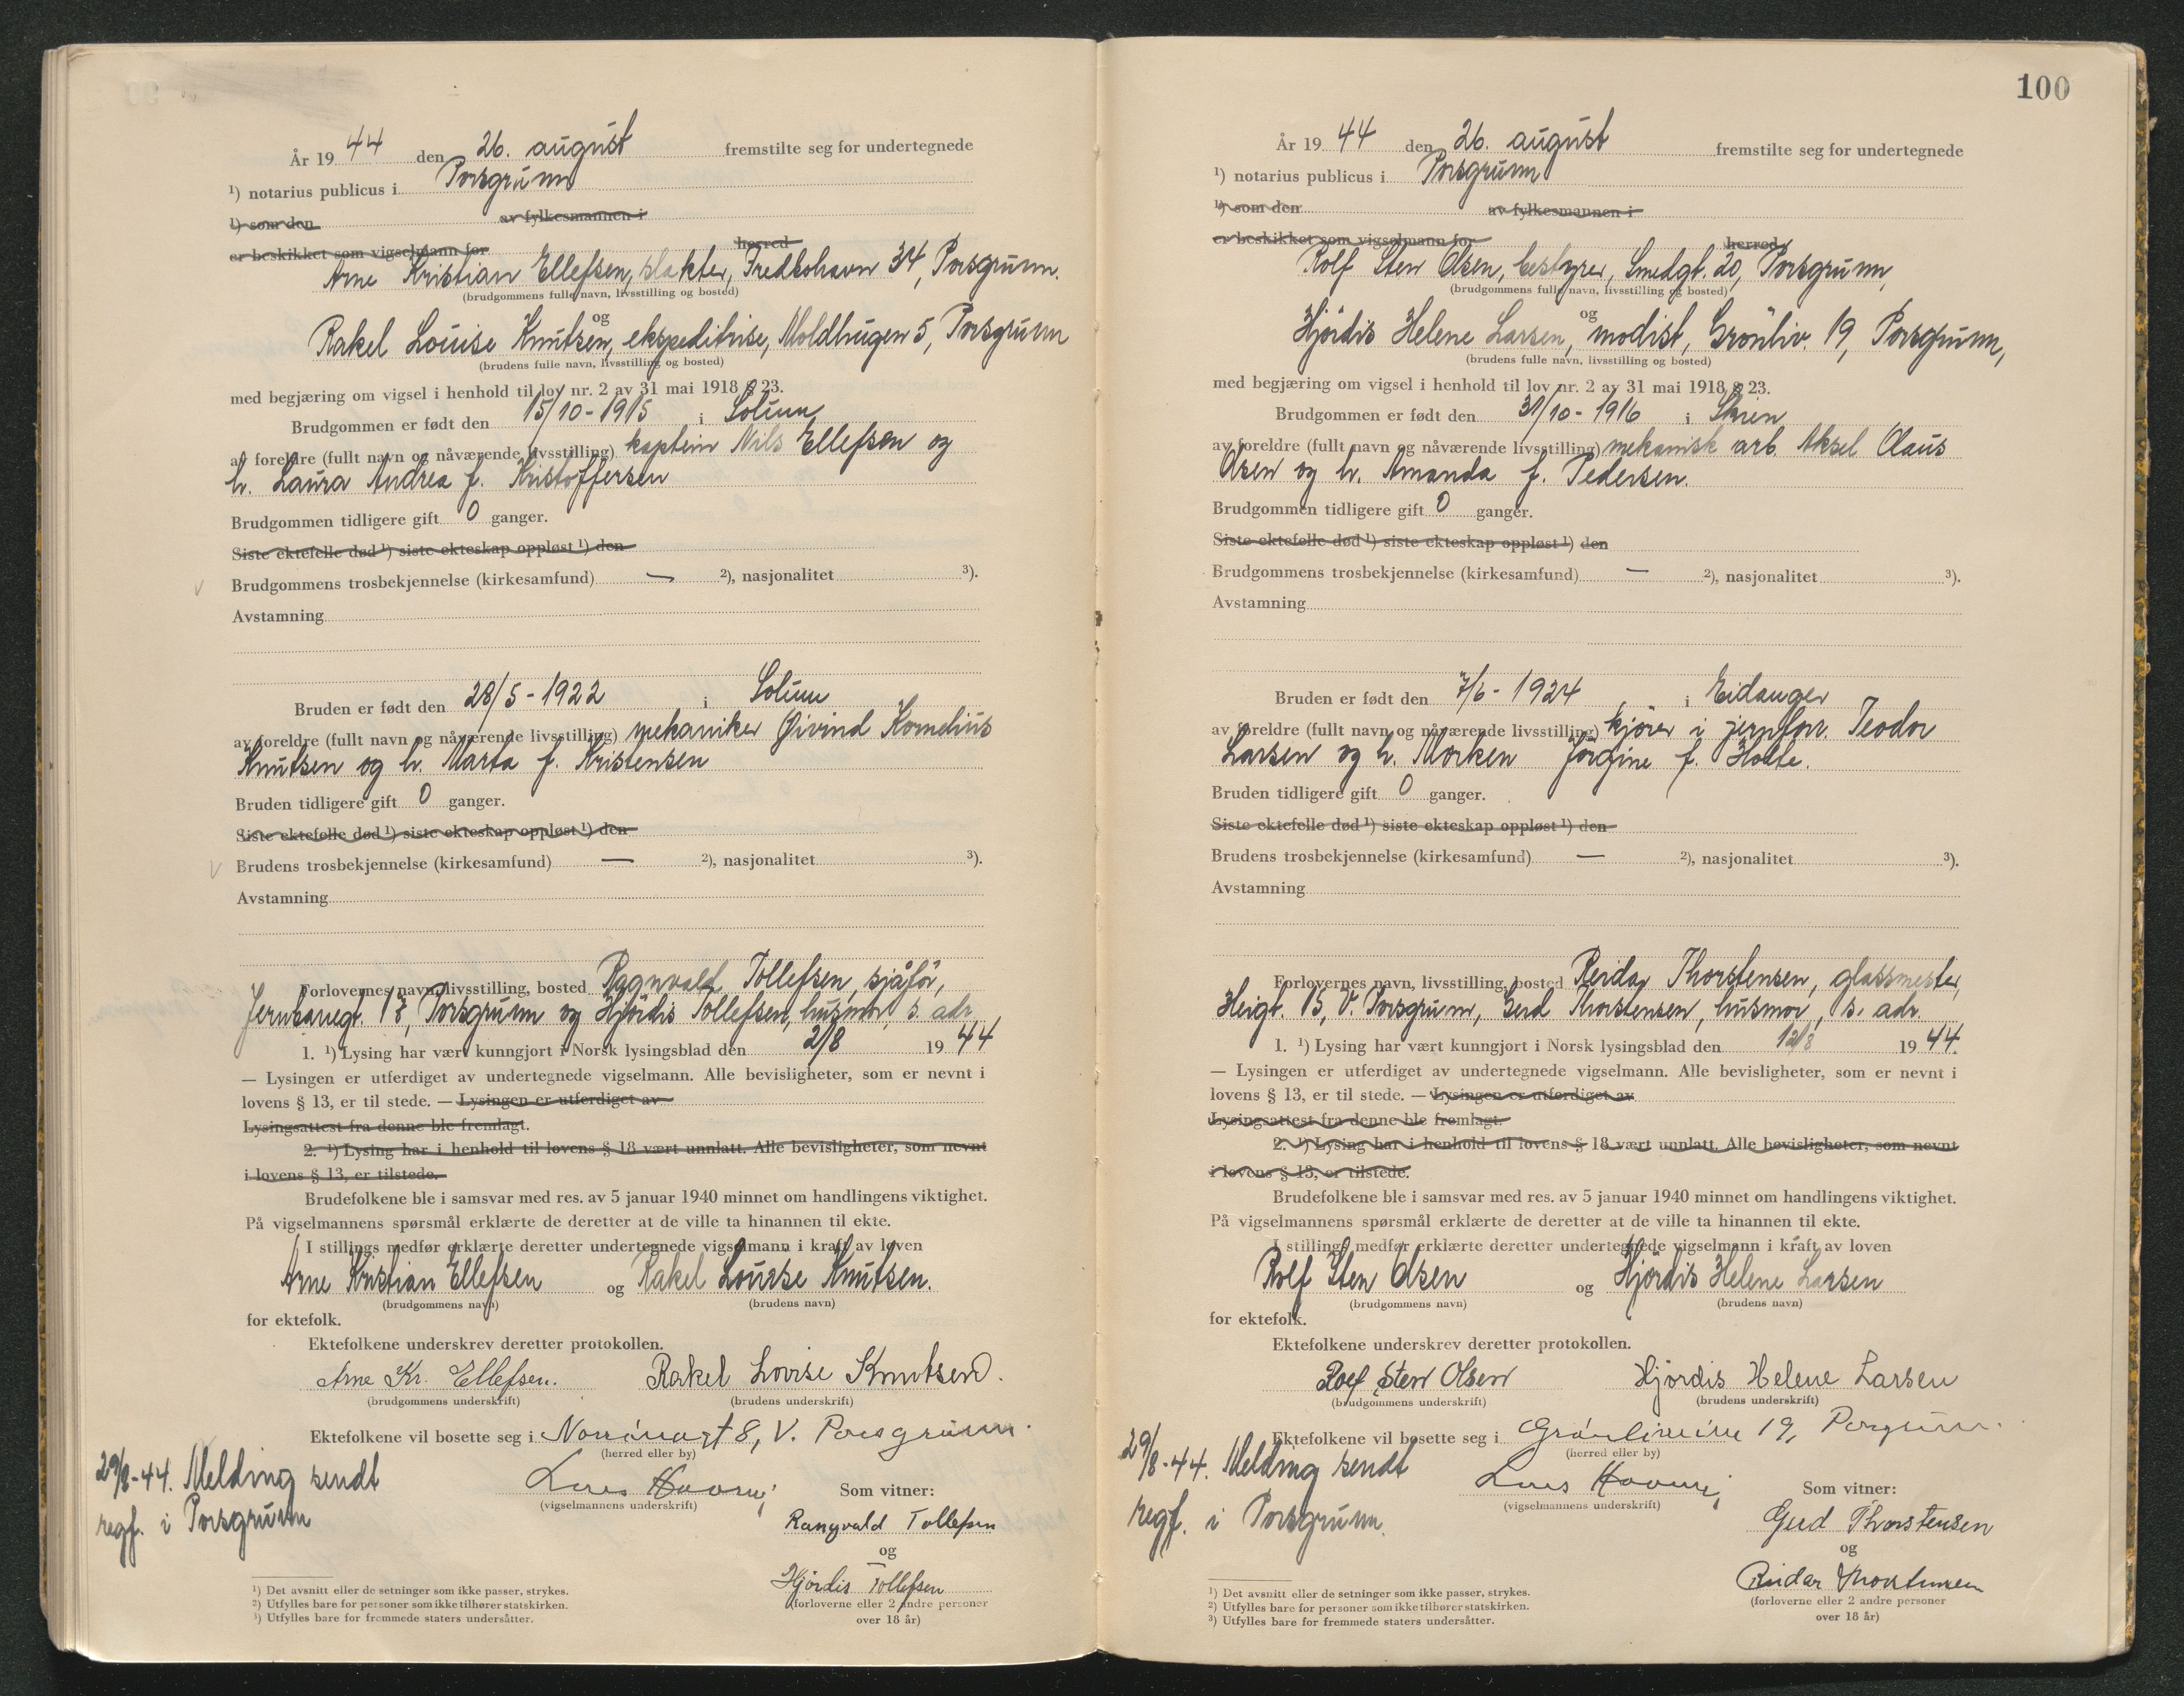 År 19 44 den 26. august fremstilte seg for undertegnede
¹) notarius publicus i Porsgrunn
¹) som den av fylkesmannen i
er beskikket som vigselmann for herred
Arne Kristian Ellefsen, slakter, Fredbohavn 34, Porsgrunn.
(brudgommens fulle navn, livsstilling og bosted)
og
Rakel Louise Knutsen, ekspeditrise, Moldhaugen 5, Porsgrunn
(brudens fulle navn, livsstilling og bosted)
med begjæring om vigsel i henhold til lov nr. 2 av 31 mai 1918 § 23.
Brudgommen er født den 15/10-1915 i Solum
av foreldre (fullt navn og nåværende livsstilling) kaptein Nils Ellefsen og
h. Laura Andrea f. Kristoffersen
Brudgommen tidligere gift 0 ganger.
Siste ektefelle død ¹) siste ekteskap oppløst ¹) den
Brudgommens trosbekjennelse (kirkesamfund) — ²), nasjonalitet ³).
Avstamning
Bruden er født den 28/5-1922 i Solum
av foreldre (fullt navn og nåværende livsstilling) mekaniker Øivind Kornelius
Knutsen og h. Marta f. Kristensen
Bruden tidligere gift 0 ganger.
Siste ektefelle død ¹) siste ekteskap oppløst ¹) den
Brudens trosbekjennelse (kirkesamfund) — ²), nasjonalitet ³).
Avstamning
Forlovernes navn, livsstilling, bosted Ragnvald Tollefsen, sjåfør,
Jernbanegt. Porsgrunn og Hjørdis Tollefsen, husmor, s. adr.
1. ¹) Lysing har vært kunngjort i Norsk lysingsblad den 2/8 19 44
— Lysingen er utferdiget av undertegnede vigselmann. Alle bevisligheter, som er nevnt i
lovens § 13, er til stede. — Lysingen er utferdiget av
Lysingsattest fra denne ble fremlagt.
2. ¹) Lysing har i henhold til lovens § 18 vært unnlatt. Alle bevisligheter, som nevnt
i lovens § 13, er tilstede.
Brudefolkene ble i samsvar med res. av 5 januar 1940 minnet om handlingens viktighet.
På vigselmannens spørsmål erklærte de deretter at de ville ta hinannen til ekte.
I stillings medfør erklærte deretter undertegnede vigselmann i kraft av loven
Arne Kristian Ellefsen og Rakel Lourse Knutsen.
(brudgommens navn) (brudens navn)
for ektefolk.
Ektefolkene underskrev deretter protokollen.
Arne Kr. Ellefsen. Rakel Lovise Knutsen.
(brudgommens underskrift) (brudens underskrift)
Ektefolkene vil bosette seg i 8, V. Porsgrunn.
(herred eller by)
29/8-44. Melding sendt
regf. i Porsgrunn
Lars
(vigselmannens underskrift)
Som vitner:
Rangvald Tollefsen
og
Hjördis Tollefsen
(forloverne eller 2 andre personer
over 18 år)
¹) Det avsnitt eller de setninger som ikke passer, strykes.
²) Utfylles bare for personer som ikke tilhører statskirken.
³) Utfylles bare for fremmede staters undersåtter.
100
År 19 44 den 26. august fremstilte seg for undertegnede
¹) notarius publicus i Porsgrunn
¹) som den av fylkesmannen i
er beskikket som vigselmann for herred
Rolf Sten Olsen, bestyrer, Smedgt. 20, Porsgrunn,
(brudgommens fulle navn, livsstilling og bosted)
og
Hjördis Helene Larsen, modist, Grönliv. 19, Porsgrunn,
(brudens fulle navn, livsstilling og bosted)
med begjæring om vigsel i henhold til lov nr. 2 av 31 mai 1918 § 23.
Brudgommen er født den 31/10-1916 i Skien
av foreldre (fullt navn og nåværende livsstilling) mekanisk arb. Aksel Olaus
Olsen og h. Amanda f. Pedersen.
Brudgommen tidligere gift 0 ganger.
Siste ektefelle død ¹) siste ekteskap oppløst ¹) den
Brudgommens trosbekjennelse (kirkesamfund) — ²), nasjonalitet ³).
Avstamning
Bruden er født den 7/6-1924 i Eidanger
av foreldre (fullt navn og nåværende livsstilling) kjörer i jernforr. Teodor
Larsen og h. Morken Jörgine f. Holte.
Bruden tidligere gift 0 ganger.
Siste ektefelle død ¹) siste ekteskap oppløst ¹) den
Brudens trosbekjennelse (kirkesamfund) — ²), nasjonalitet ³).
Avstamning
Forlovernes navn, livsstilling, bosted Reidar Thorstensen, glassmester,
Heigt. 15, V. Porsgrunn, Gerd Thorstensen, husmor, s. adr.
1. ¹) Lysing har vært kunngjort i Norsk lysingsblad den 12/8 19 44.
— Lysingen er utferdiget av undertegnede vigselmann. Alle bevisligheter, som er nevnt i
lovens § 13, er til stede. — Lysingen er utferdiget av
Lysingsattest fra denne ble fremlagt.
2. ¹) Lysing har i henhold til lovens § 18 vært unnlatt. Alle bevisligheter, som nevnt
i lovens § 13, er tilstede.
Brudefolkene ble i samsvar med res. av 5 januar 1940 minnet om handlingens viktighet.
På vigselmannens spørsmål erklærte de deretter at de ville ta hinannen til ekte.
I stillings medfør erklærte deretter undertegnede vigselmann i kraft av loven
Rolf Sten Olsen og Hjördis Helene Larsen
(brudgommens navn) (brudens navn)
for ektefolk.
Ektefolkene underskrev deretter protokollen.
Rolf Sten Olsen Hjördis Helene Larsen
(brudgommens underskrift) (brudens underskrift)
Ektefolkene vil bosette seg i 19, Porsgrunn.
(herred eller by)
29/8-44. Melding sendt
regf. i Porsgrunn.
Lars
(vigselmannens underskrift)
Som vitner:
Gerd Thorstensen
og
Reidar Thorstensen
(forloverne eller 2 andre personer
over 18 år)
¹) Det avsnitt eller de setninger som ikke passer, strykes.
²) Utfylles bare for personer som ikke tilhører statskirken.
³) Utfylles bare for fremmede staters undersåtter.